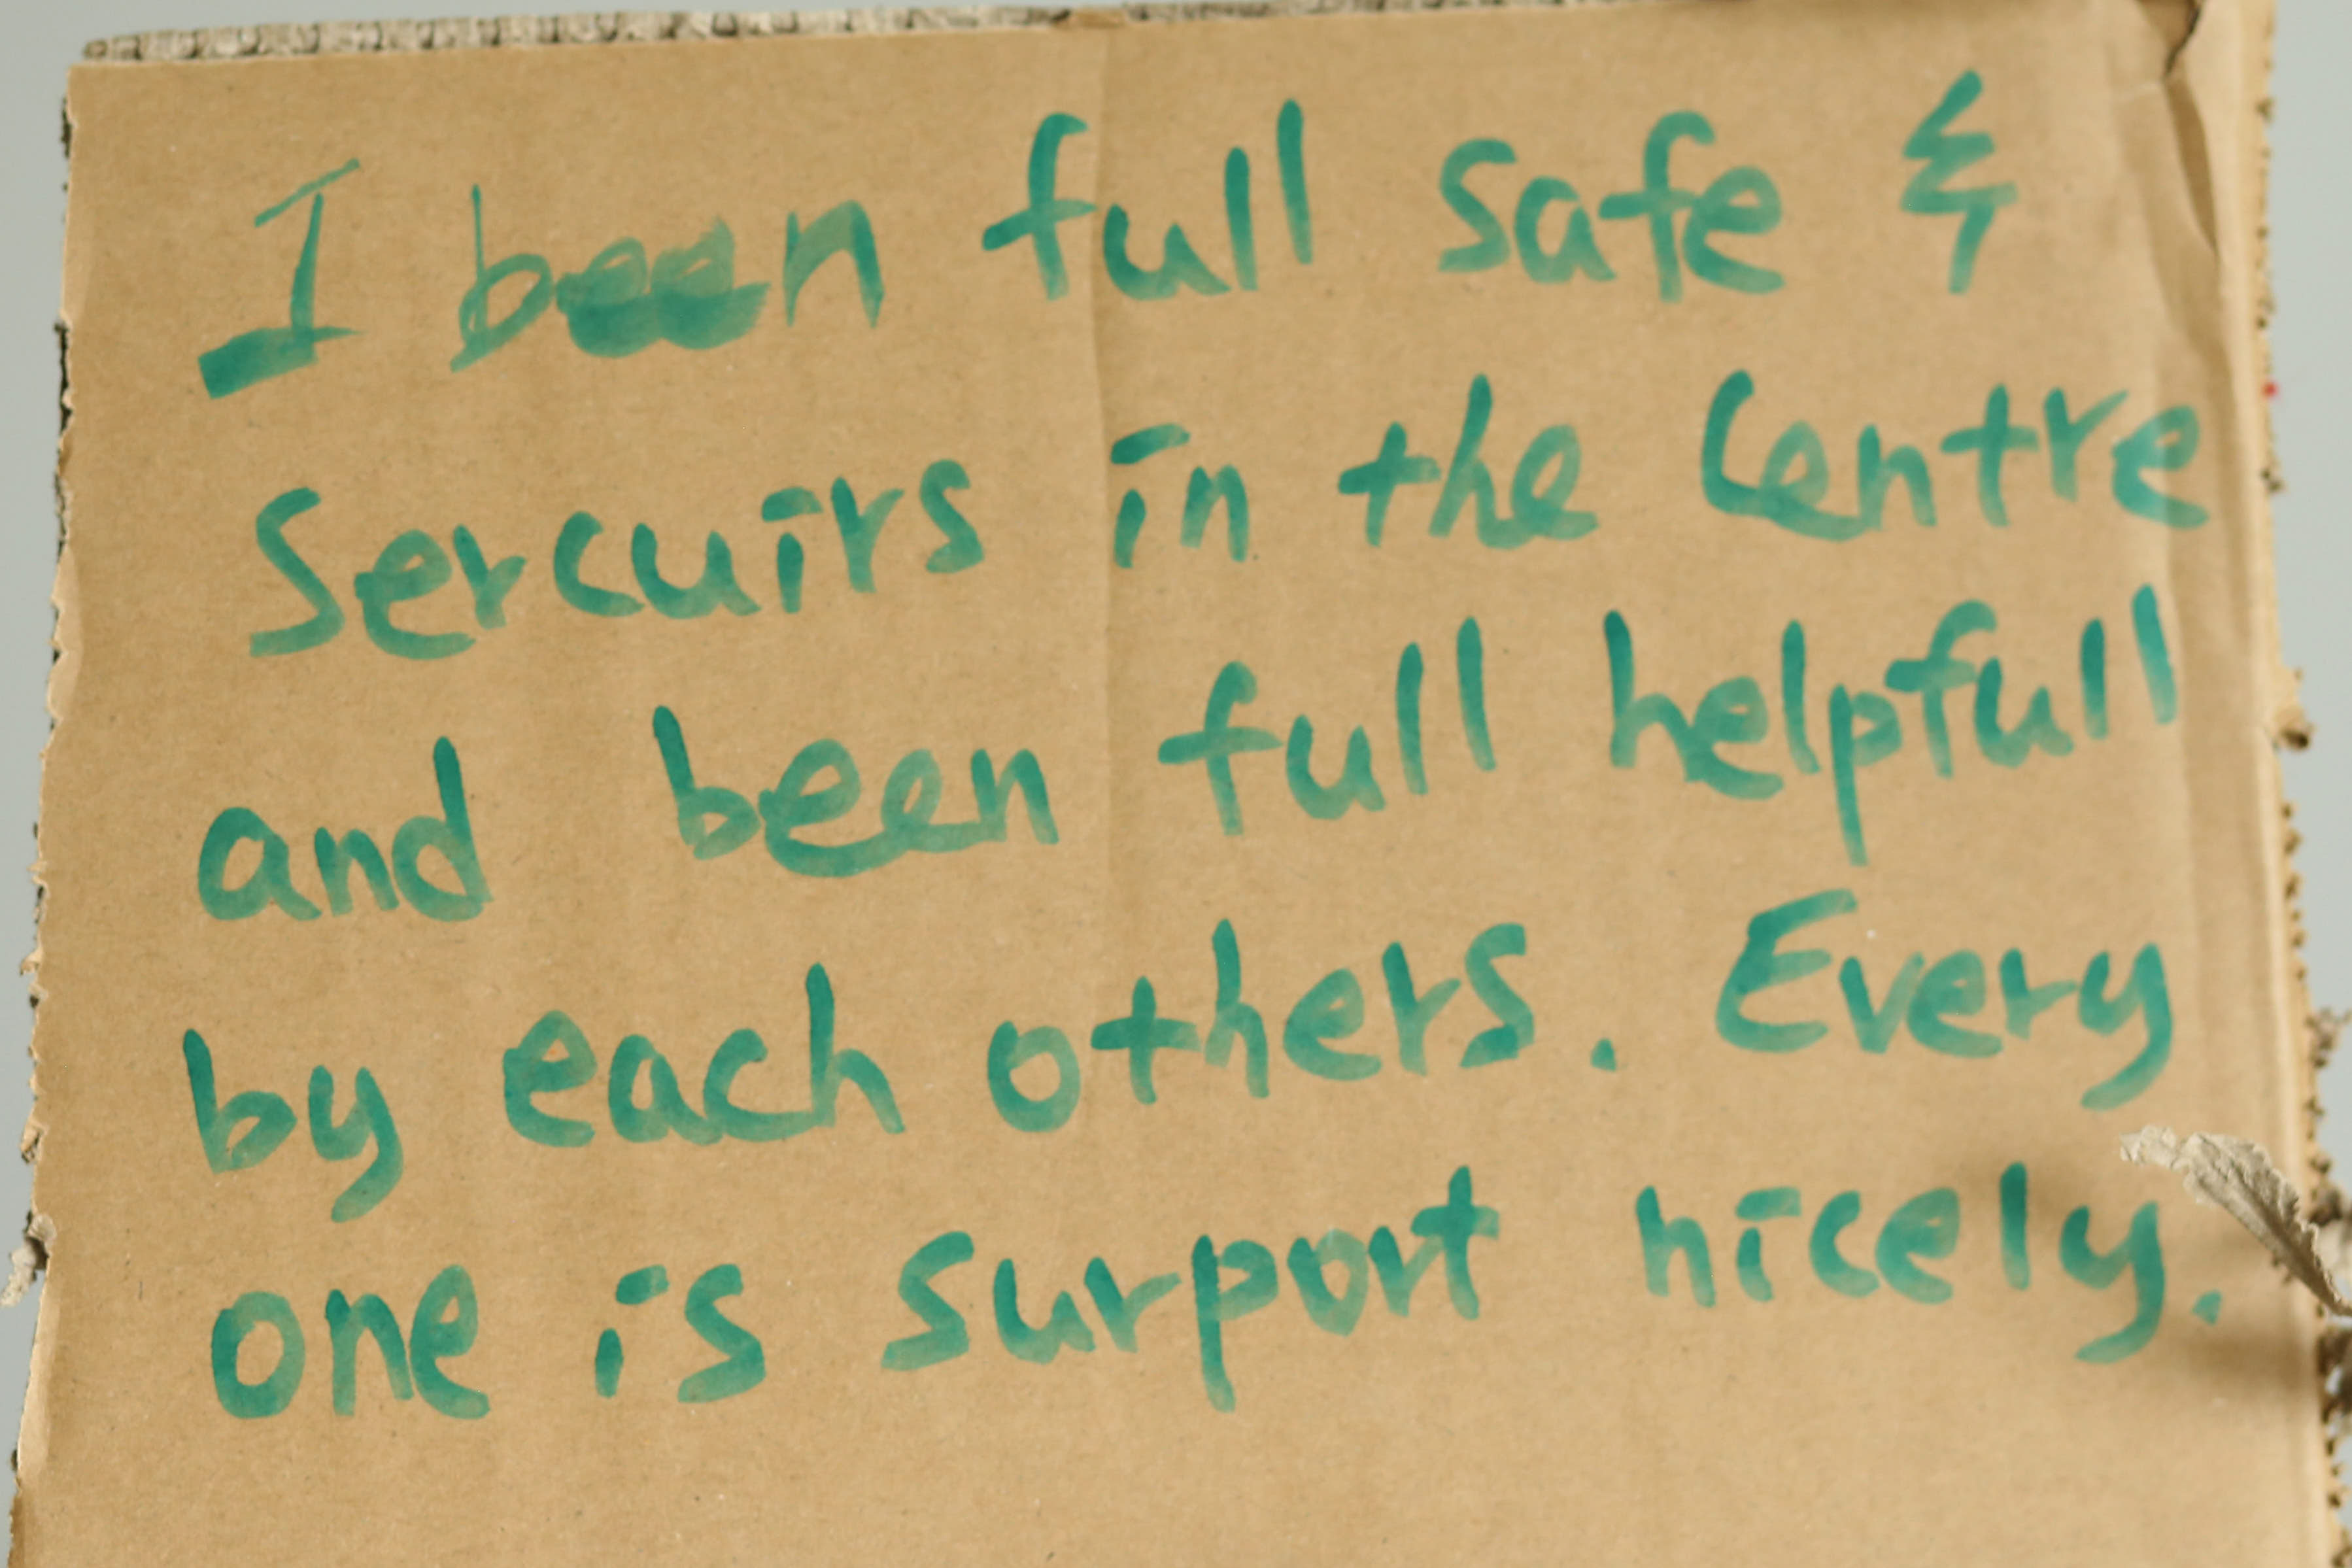 I been full safe &
Sercuirs in the Centre
and been full helpfull
by each others. Every
one is surport nicely.